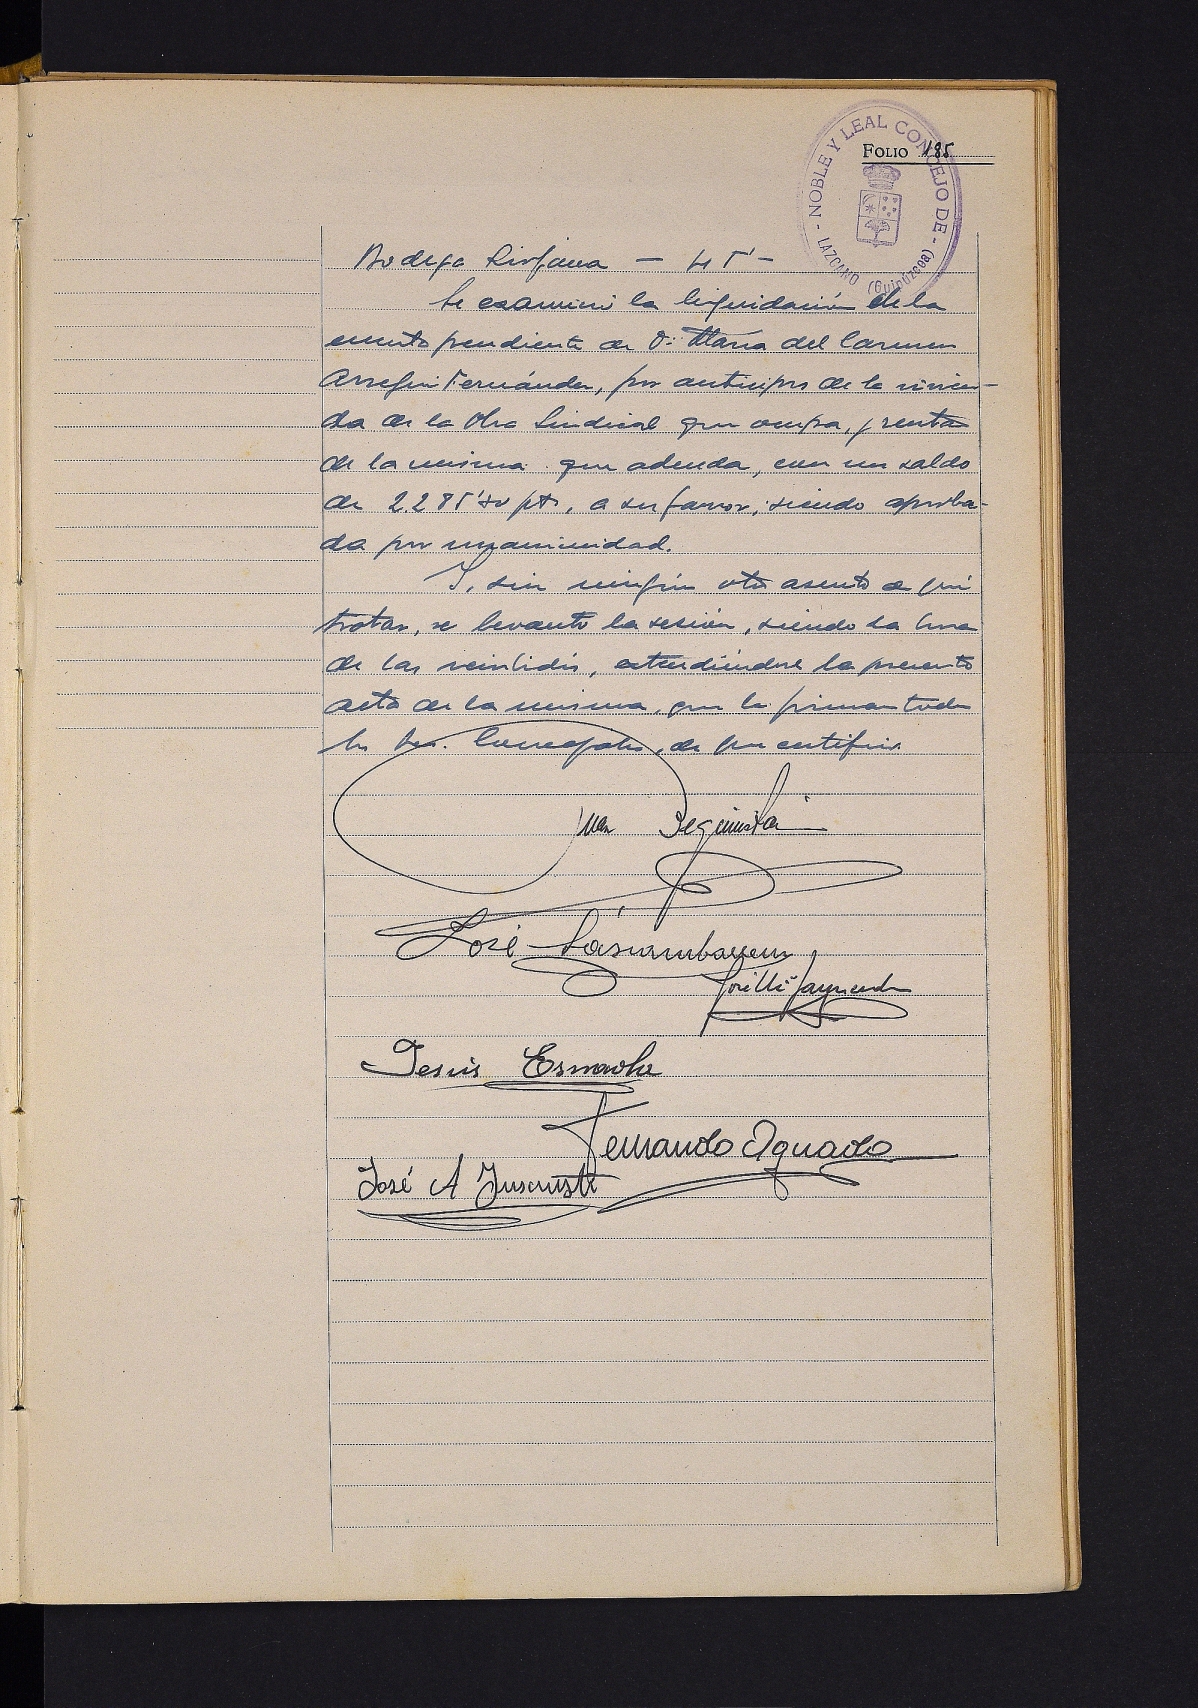 FOLIO 185
- NOBLE Y LEAL CONCEJO DE - LAZCANO (Guipúzcoa)
Bodega Riojana — 45'-
Se examinó la liquidación de la
cuenta pendiente de Dª Maria del Carmen
Arregui Fernández, por anticipos de la vivien-
da de la Obra Sindical que ocupa, y renta
de la misma que adeuda, con un saldo
de 2285' pts, a su favor, siendo aproba-
da por unanimidad.
Y, sin ningún otro asunto de que
tratar, se levantó la sesión, siendo la hora
de las veintidós, extendiéndose la presente
acta de la misma, que la firman todos
los Sres. Concejales, de que certifico.
Juan Beguiristain
José
Jesús Esnaola
Fernando Aguado
José A